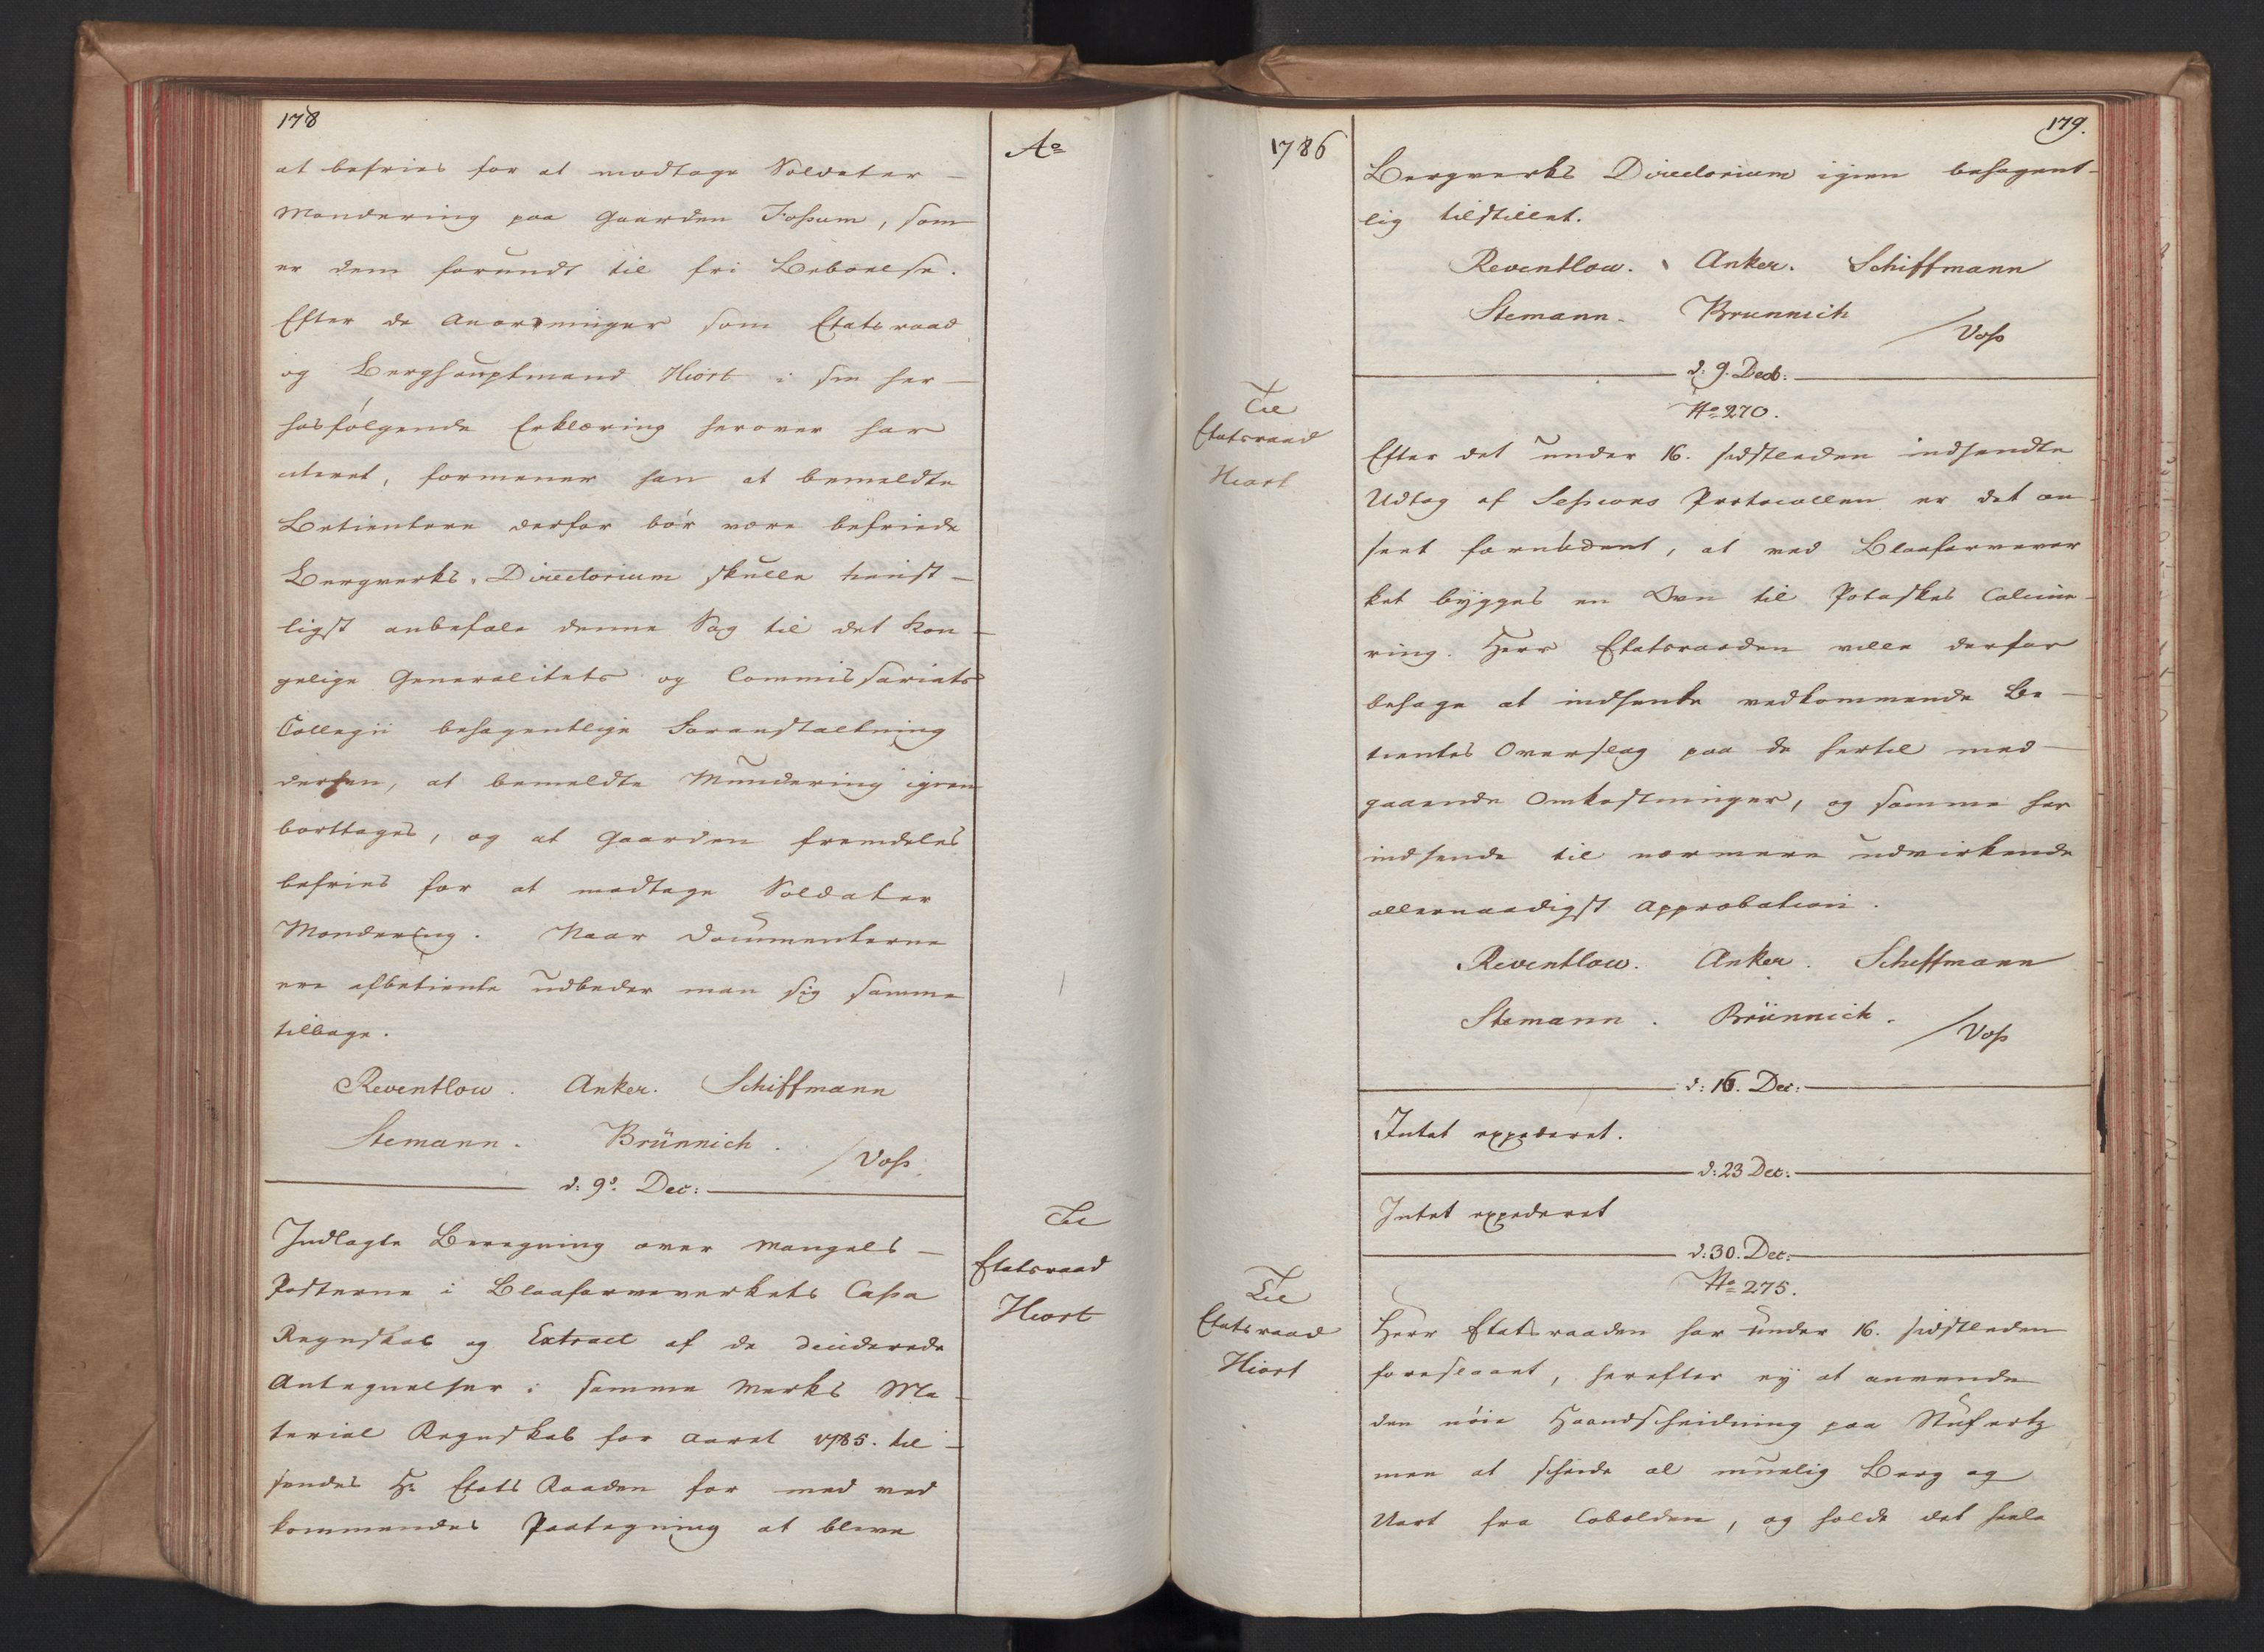 178
Ao
at befries for at modtage Soldater-
Mondering paa Gaarden Foßum, som
er dem forundt til fri Beboelse.
Efter de Anordninger som Etatsraad
og Berghauptmand Hiort i sin her-
hosfølgende Erklæring herover har
citeret, formener han at bemeldte
Betientere derfor bør være befriede
Bergverks-Directorium skulle tienst-
ligst anbefale denne Sag til det Kon-
gelige Generalitets og Commissariats
Collegii behagentlige Foranstaltning
derhen, at bemeldte Mundering igien
borttages, og at Gaarden fremdeles
befries for at modtage Soldater
Mondering. Naar Documenterne
ere afbetiente udbeder man sig samme
tilbage.
Reventlow. Anker. Schiffmann
Stemann. Brünnich. /Voß
d: 9d. Dec:
Til
Etatsraad
Hiort
Indlagte Beregning over Mangels-
Posterne i Blaafarveverkets Cassa
Regnskab og Extract af de deciderede
Antegnelser i samme Werks Ma-
terial Regnskab for Aaret 1785. til-
sendes Hr Etats Raaden for med ved
kommendes Paategning at blive
1786
179.
Bergverks Directorium igien behagent-
lig tilstillet.
Reventlow. Anker. Schiffmann
Stemann. Brunnich /Voß
d: 9. Decb:
No 270.
Til
Etatsraad
Hiort
Efter det under 16. sidstleden indsendte
Udtog af Sessions Protocollen er det an-
seet fornødent, at ved Blaafarvever
ket bygges en Ovn til Potaskes Calcine-
ring. Herr Etatsraaden ville derfor
behage at indhente vedkommende Be-
tientes Overslag paa de hertil med-
gaaende Omkostninger, og samme her
indsende til nærmere udvirkende
allernaadigst Approbation.
Reventlow. Anker. Schiffmann
Stemann. Brünnich. /Voß
d: 16. Dec:
Intet expederet.
d: 23 Dec:
Intet expederet
d: 30. Dec:
No 275.
Til
Etatsraad
Hiort
Herr Etatsraaden har under 16. sidstleden
foreslaaet, herefter ey at anvende
den nøie Haandscheidning paa Stufertz
men at scheide al muelig Berg og
Uart fra Cobolden, og holde det heele